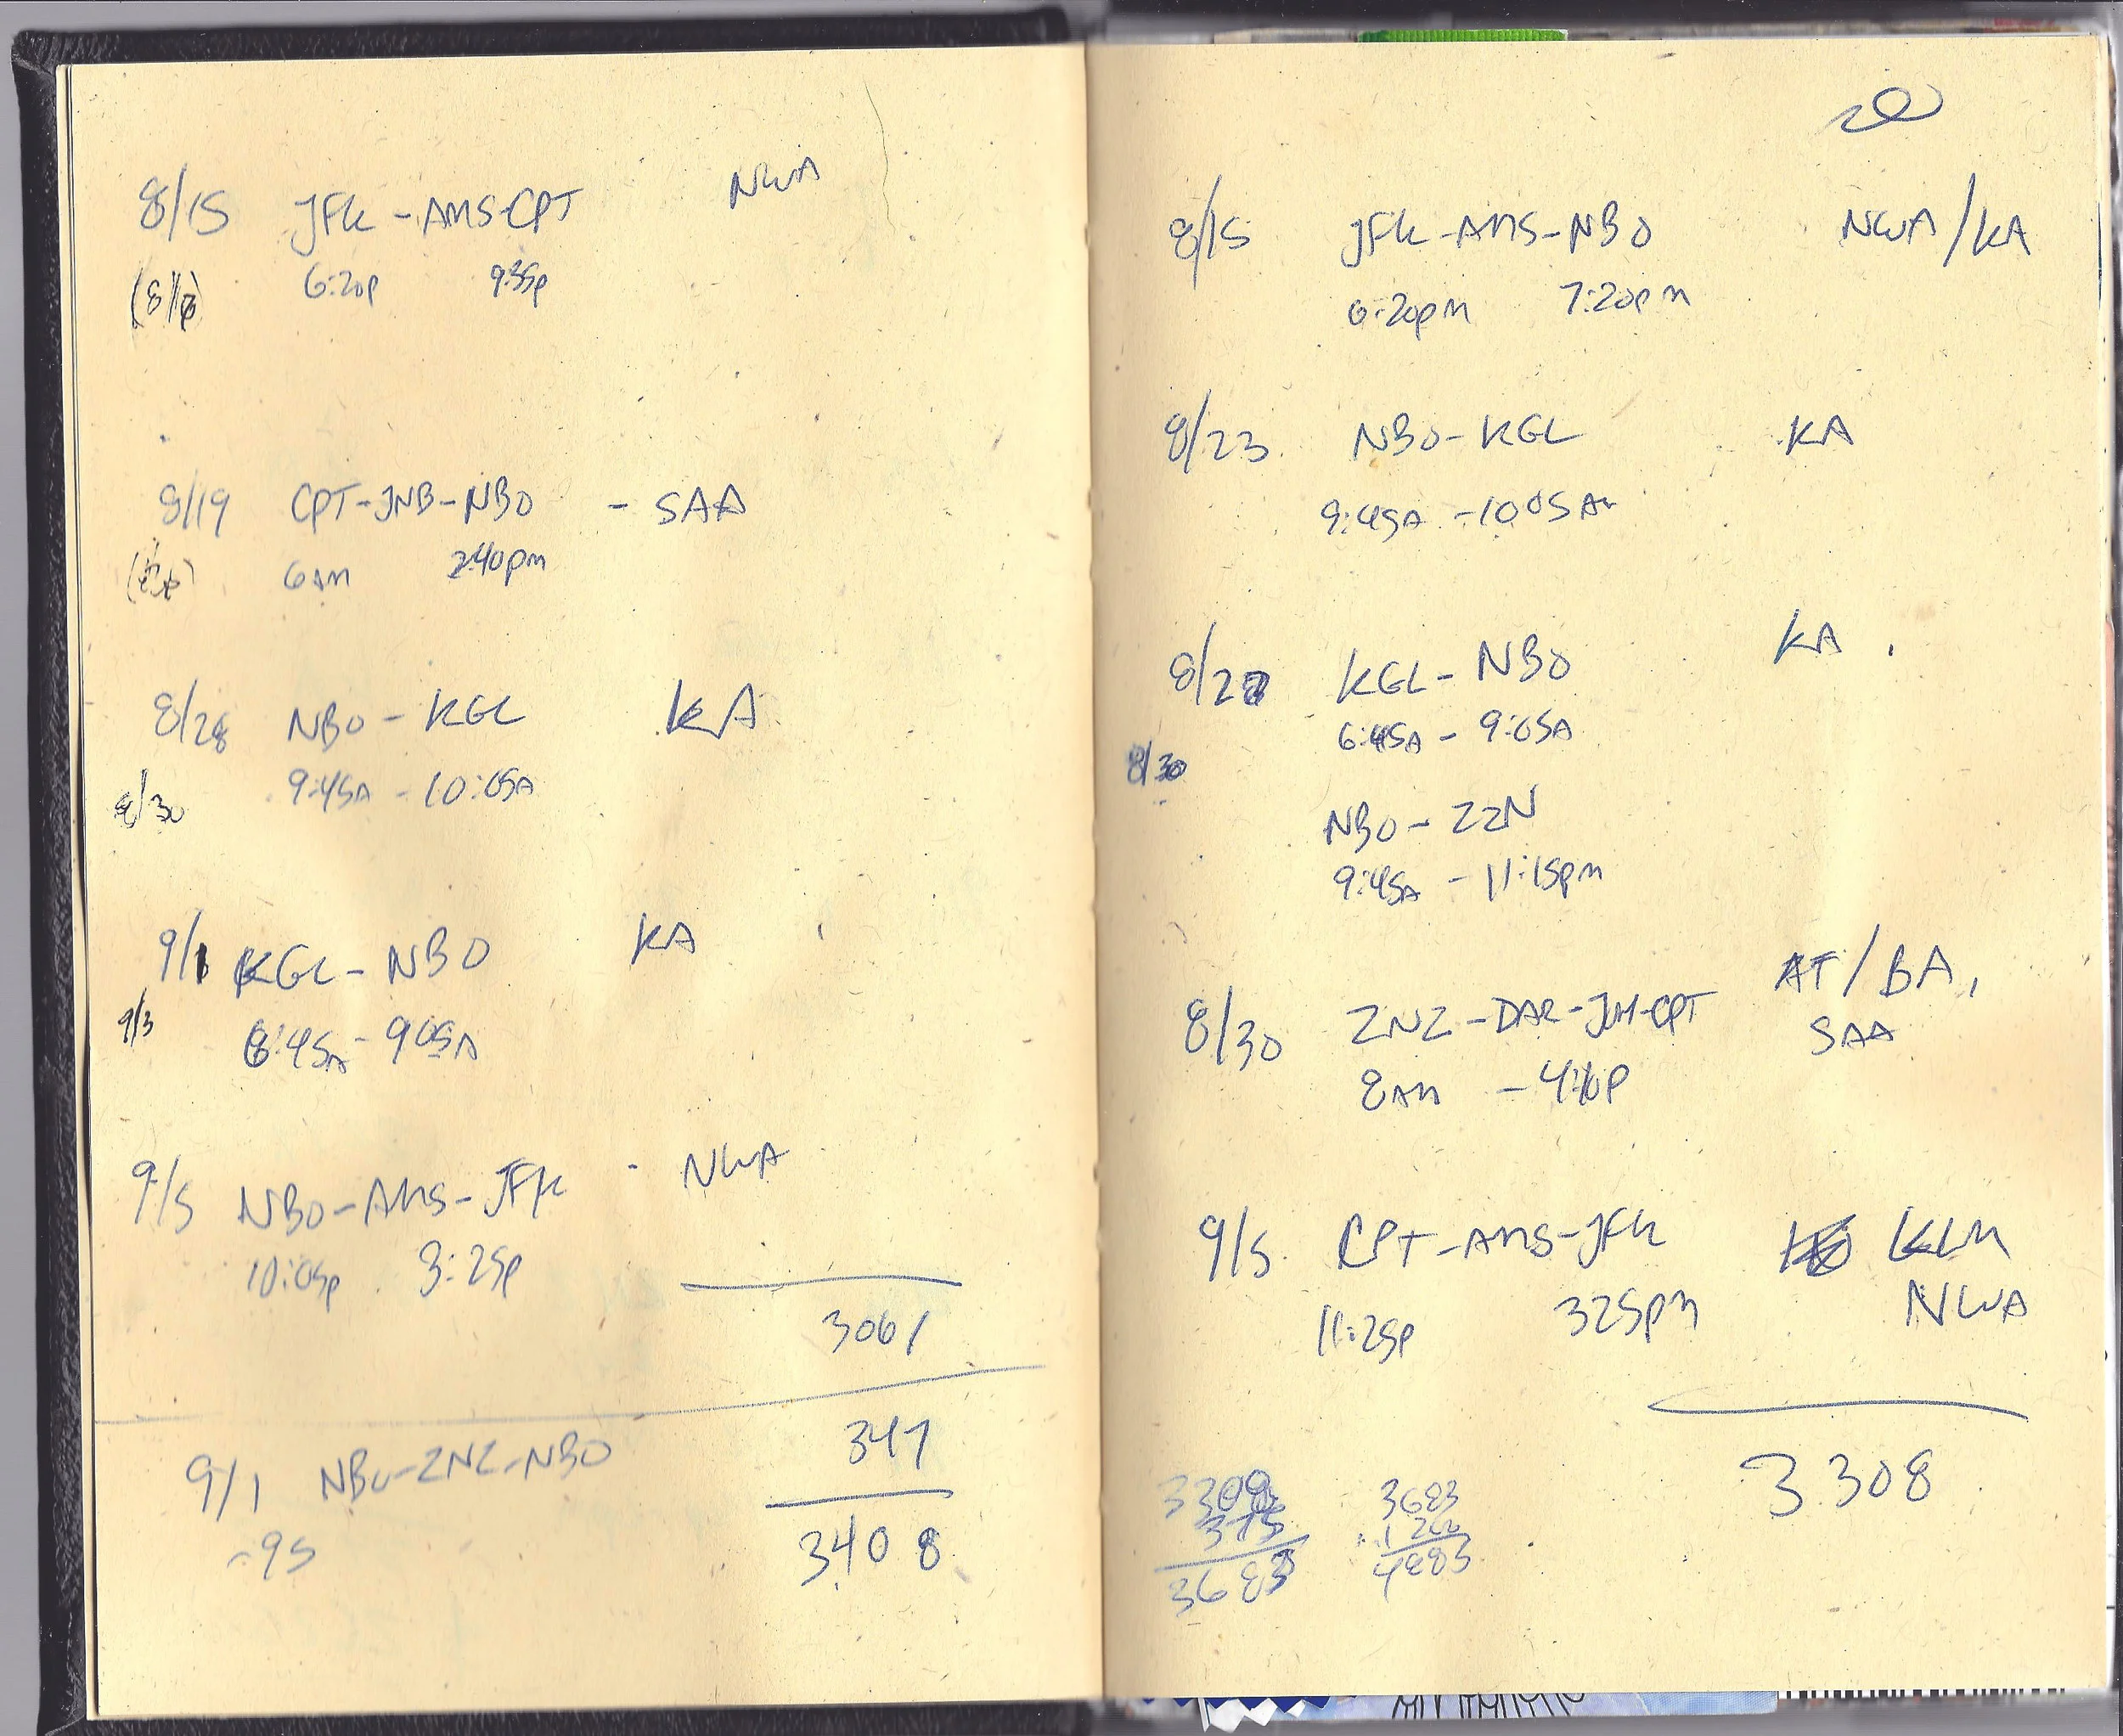 8/15 JFK - AMS-CPT NWA
6:20p 9:35p
8/19 CPT-JNB-NBO - SAA
6AM 2:40pm
8/28 NBO - KGL KA
9:45A - 10:05A
8/30
9/1 KGL - NBO KA
9/3
6:45A - 905A
9/5 NBO-AMS-JFK - NWA
10:05p 3:25p
3061
347
9/1 NBO-ZNZ-NBO
-95
3408
8/15 JFK-AMS-NBO NWA/KA
6:20pm 7:20pm
8/23 NBO-KGL KA
9:45A - 1005AM
KGL - NBO KA
6:45A - 9:05A
8/30
NBO - ZZN
9:45A - 11:15pm
8/30 ZNZ-DAR-JNH-CPT AT/BA,
SAA
8AM - 4:40p
9/5 CPT-AMS-JFK KLM
11:25p 325pm NWA
3308
375
3683
3683
1200
4883